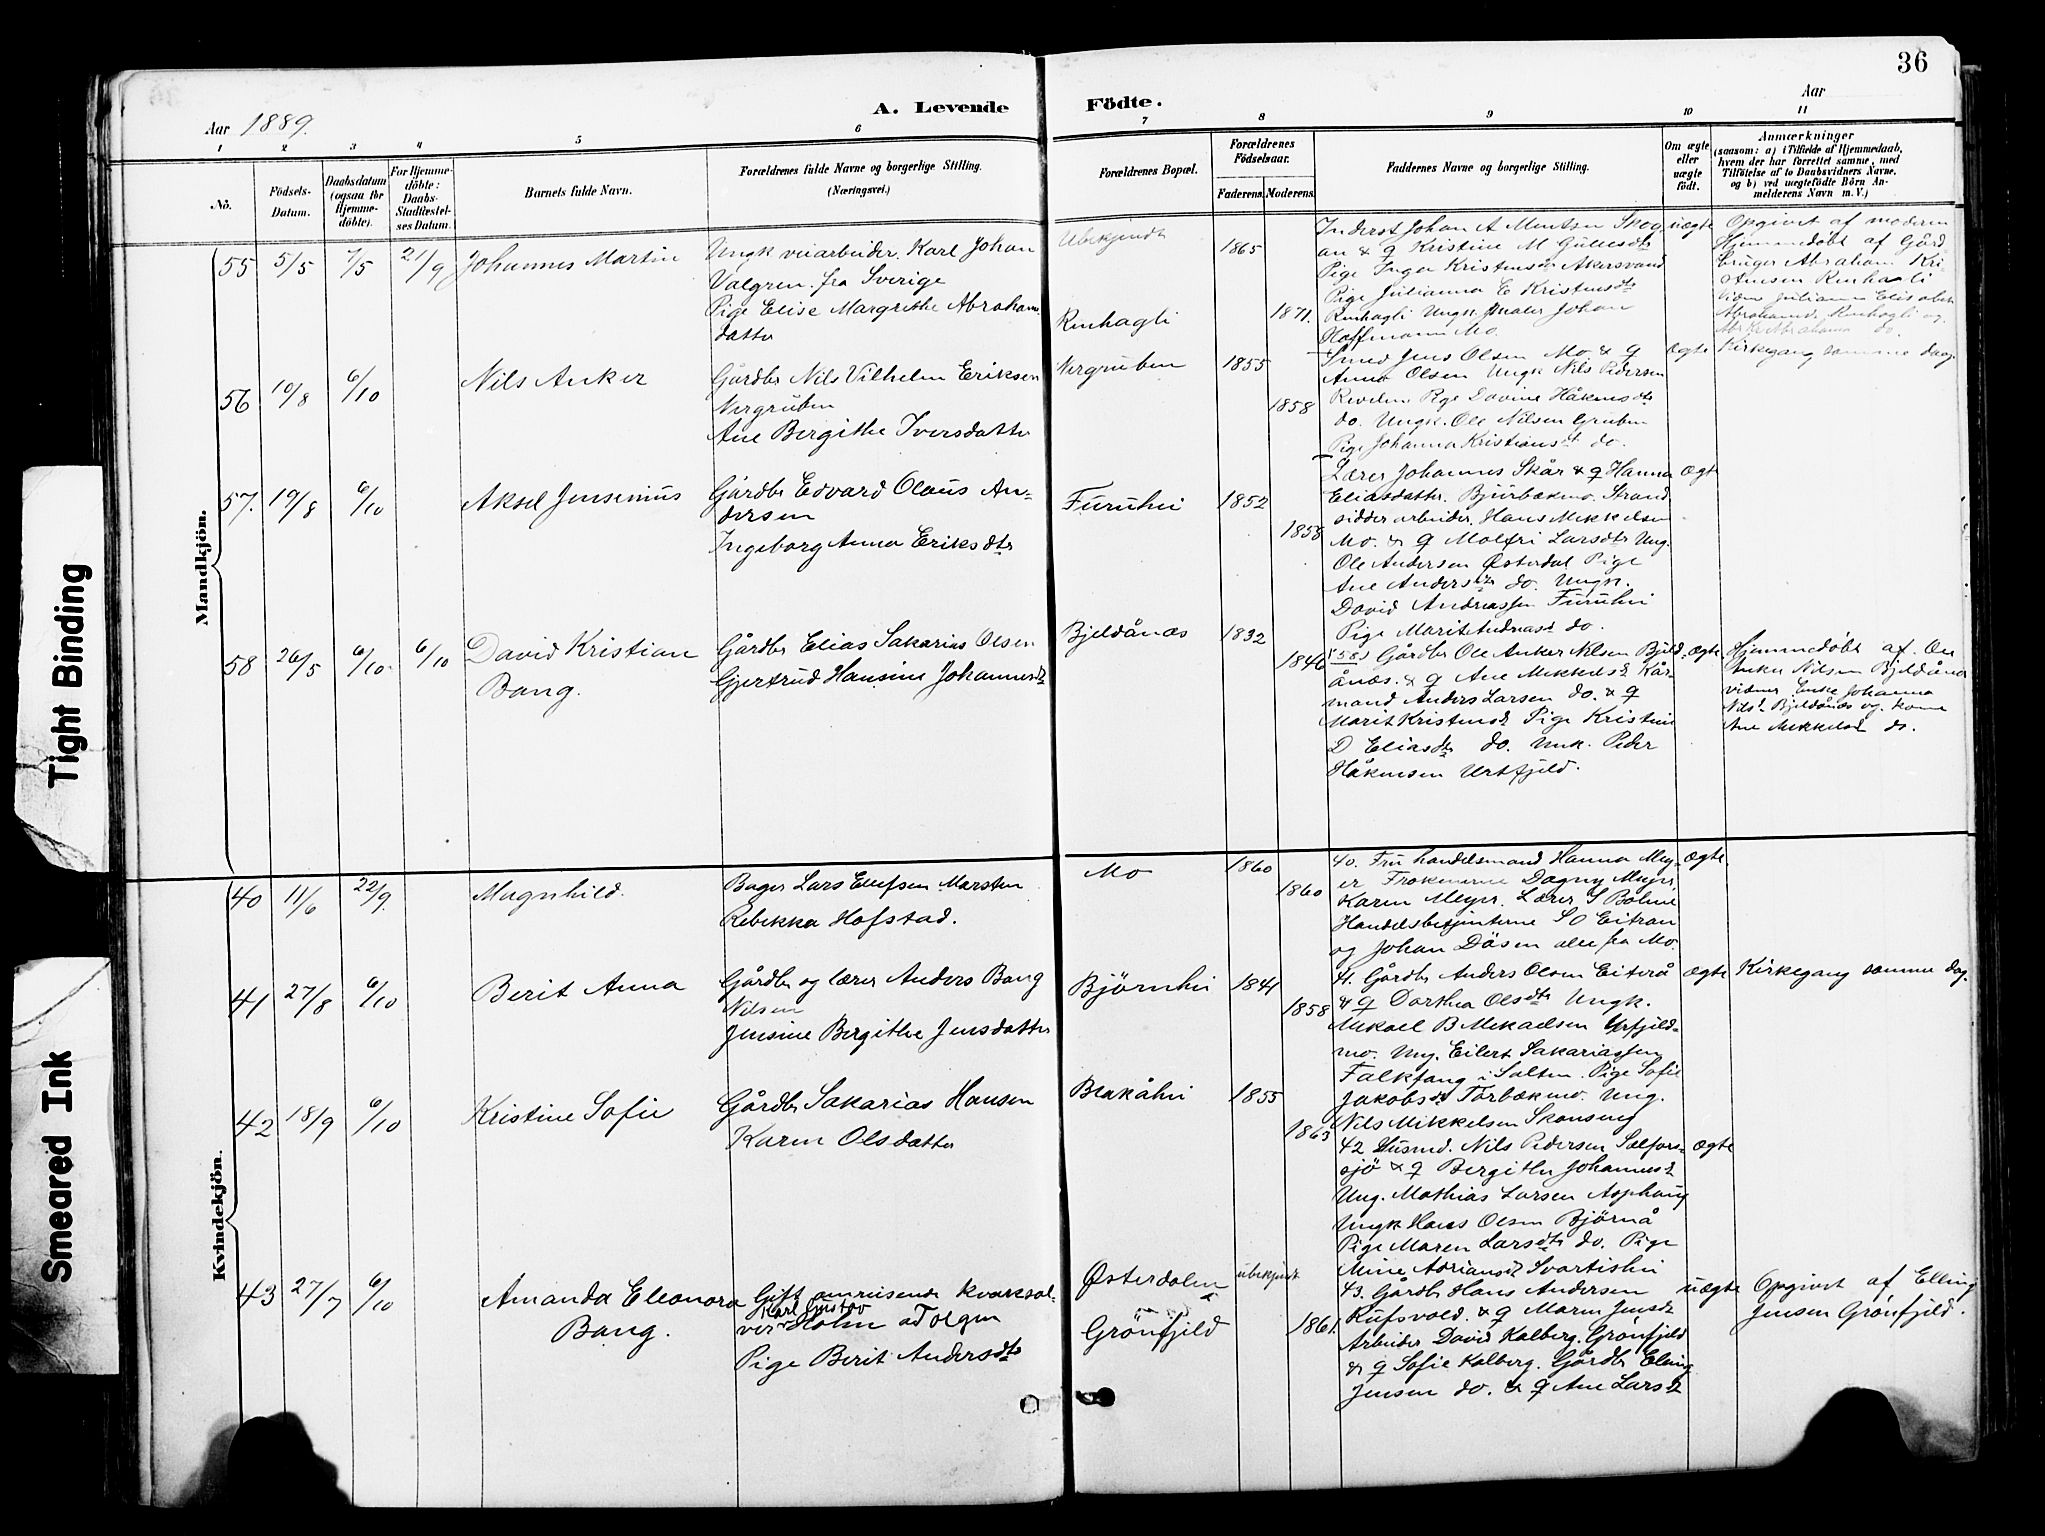 36
A. Levende Födte.
Aar 1889.
Aar
1 2 3 4 5 6 7 8 9 10 11
No.
Födsels-Datum.
Daabsdatum (ogsaa for Hjemme-döbte).
For Hjemme-döbte: Daabs-Stadfæstel-ses Datum.
Barnets fulde Navn.
Forældrenes fulde Navne og borgerlige Stilling. (Næringsvei.)
Forældrenes Bopæl.
Forældrenes Födselsaar.
Faderens. Moderens.
Faddernes Navne og borgerlige Stilling.
Om ægte eller uægte födt.
Anmærkninger
(saasom: a) i Tilfælde af Hjemmedaab, hvem der har forrettet samme, med Tilföielse af to Daabsvidners Navne, og b) ved uægtefödte Börn An-melderens Navn m. V.)
Mandkjön.
55 5/5 7/5 21/9 Johannes Martin
Ungk veiarbeider Karl Johan
Valgren fra Sverige
Pige Elise Margrethe Abrahams
datter
Ubekjendt
Renhagli
1865
1871.
Inderst Johan A Mentsen Skog
an & q Kristine M Gullesdtr
Pige Inger Kristensdtr Akersvand
Pige Julianna E Kristensdtr
Renhagli Ungk. Maler Johan
Hoffmann Mo.
uægte
Opgivet af moderen
Hjemmedøbt af Gård
bruger Abraham Kri-
stensen Renhagli
56 10/8 6/10 Nils Anker
Gårdbr Nils Vilhelm Eriksen
Nergruben
Ane Bergithe Iversdatter
Nergruben
1855
1858
Smed Jens Olsen Mo. & q
Anna Olsen Ungk Nils Pedersen
Revelen Pige Davine Håkensdtr
do. Ungk. Ole Nilsen Gruben
Pige Johanna Kristiansdt do.
ægte
Kirkegang samme dag.
57. 19/8 6/10 Aksel Jensenius
Gårdbr Edvard Olaus An-
dersen
Ingeborg Anna Eriksdtr
Furuhei
1852
1858
Lærer Johannes Skår & q Hanna
Eliasdatter. Bjurbækmo. Strand
sidder arbeider. Hans Mikkelsen
Mo. & q Molfri Larsdtr Ung.
Ole Andersen Østerdal Pige
Ane Andersdtr do. Ungk.
David Andreassen Furuhei
Pige Marit Andreasd do.
ægte
58 26/5 6/10 6/10 David Kristian
Bang.
Gårdbr Elias Sakarias Olsen
Gjertrud Hansine Johannesdtr
Bjeldånæs
1832
1846
(58) Gårdbr Ole Anker Nilsen Bjeld-
ånæs. & q Ane Mikkelsd Kår
mand Anders Larsen do. & q
Marit Kristensd. Pige Kristine
D Eliasdtr do. Unk. Peder
Håkensen Urtfjeld.
ægte
Hjemmedøbt af Ole
Anker Nilsen Bjeldånæs
vidner Enke Johanna
Nilsd Bjeldånæs og kone
Ane Mikkelsd do.
Kvindekjön.
40 11/6 22/9. Magnhild.
Bager Lars Ellefsen Marsten
Rebekka Hofstad.
Mo
1860
1860
40. Fru handelsmand Hanna Mey-
er Frøknerne Dagny Meyer,
Karen Meyer. Lærer S Bøhme
Handelsbetjenterne S O Eitran
og Johan Døsen alle fra Mo.
ægte
41 27/8 6/10 Berit Anna
Gårdbr og lærer Anders Bang
Nilsen
Jensine Bergithe Jensdatter
Bjørnhei
1841
1858
41. Gårdbr Anders Olsen Eiterå
& q Dorthea Olsdtr Ungk.
Mikael B Mikaelsen Urfjeld-
mo. Ung. Eilert Sakariassen
Falkfang i Salten. Pige Sofie
Jakobsd Tørbækmo. Ung.
Nils Mikkelsen Skonseng
ægte
Kirkegang samme dag.
42 18/9 6/10 Kristine Sofie
Gårdbr Sakarias Hansen
Karen Olsdatter
Blakåhei
1855
1863
42 Husmd. Nils Pedersen Salfors-
sjø & q Bergithe Johannesd
Ung. Mathias Larsen Asphaug
Ungk Hans Olsen Bjørnå
Pige Maren Larsdtr do. Pige
Mine Adriansd Svartishei
ægte
43 27/7 6/10 Amanda Eleonora
Bang.
Gift omreisende kvaksal-
Karl Gustav
ver Holm a Tolgen
Pige Berit Andersdtr
Østerdalen
Grønfjeld
ubekjendt
1861.
43. Gårdbr Hans Andersen
Rufsvold. & q Maren Jensd
Arbeider David Kalberg. Grønfjeld
& q Sofie Kalberg. Gårdbr Elling
Jensen do. & q Ane Larsd
uægte
Opgivet af Elling
Jensen Grønfjeld.
Tight Binding
Smeared Ink